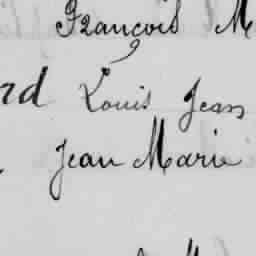 François M
rd Louis Jean
Jean Marie